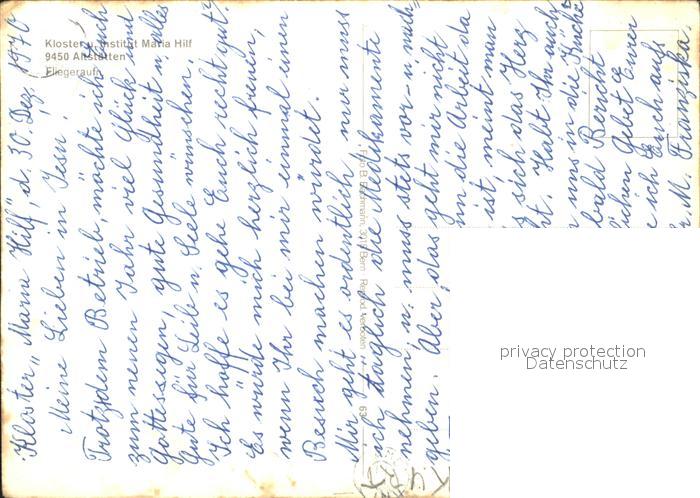 Kloster u. Institut Maria Hilf
9450 Altstätten
Fliegeraufn.
Kloster „Maria Hilf", d. 30. Dez. 1970
Meine Lieben in Jesu!
Trotzdem Betrieb, möchte ich Euch
zum neuen Jahr viel Glück und
Gottessegen, gute Gesundheit u. alles
Gute für Leib u. Seele wünschen.
Ich hoffe es gehe Euch recht gut?
Es würde mich herzlich freuen,
wenn Ihr bei mir einmal einen
Besuch machen würdet.
Mir geht es ordentlich, nur muss
ich täglich die Medikamente
nehmen, u. muss stets vor- u. nach-
geben. Aber, das geht mir nicht
die Arbeit da
ist, meint man
sich das Herz
Halt Ihr auch
uns in die Küche
bald Bericht
Gebet Eurer
ich Euch auf
M. Franziska
privacy protection
Datenschutz